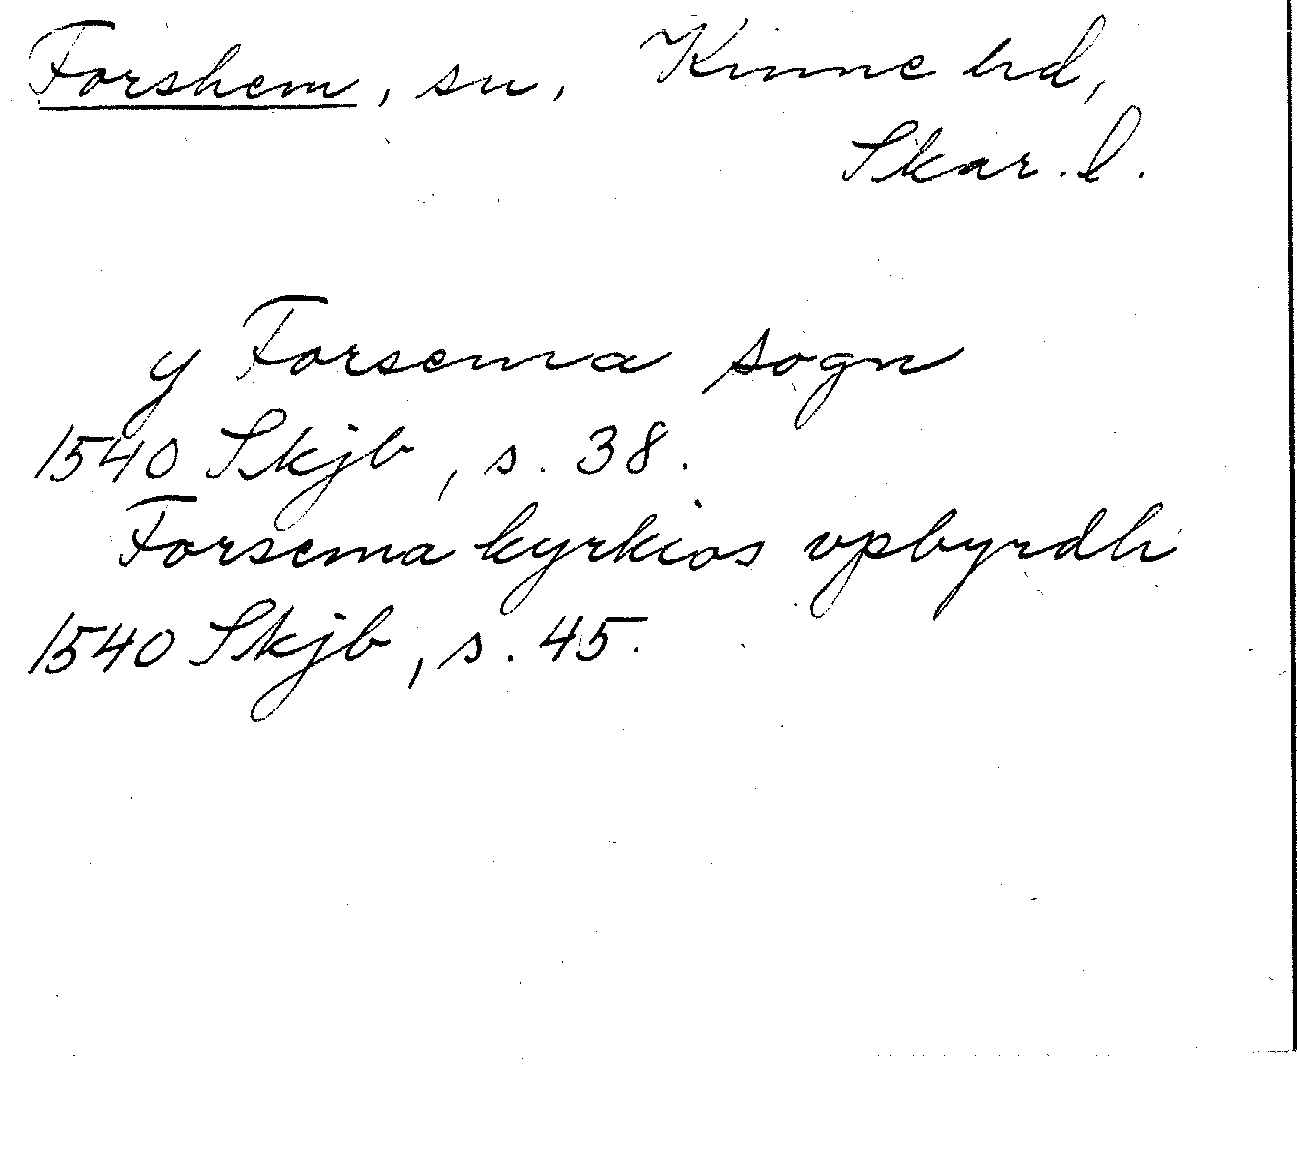 Forshem, sn, Kinne hd,
Skar. l.
y Forsema sogn
1540 Skjb, s. 38.
Forsema kyrkios vpbyrdh
1540 Skjb, s. 45.